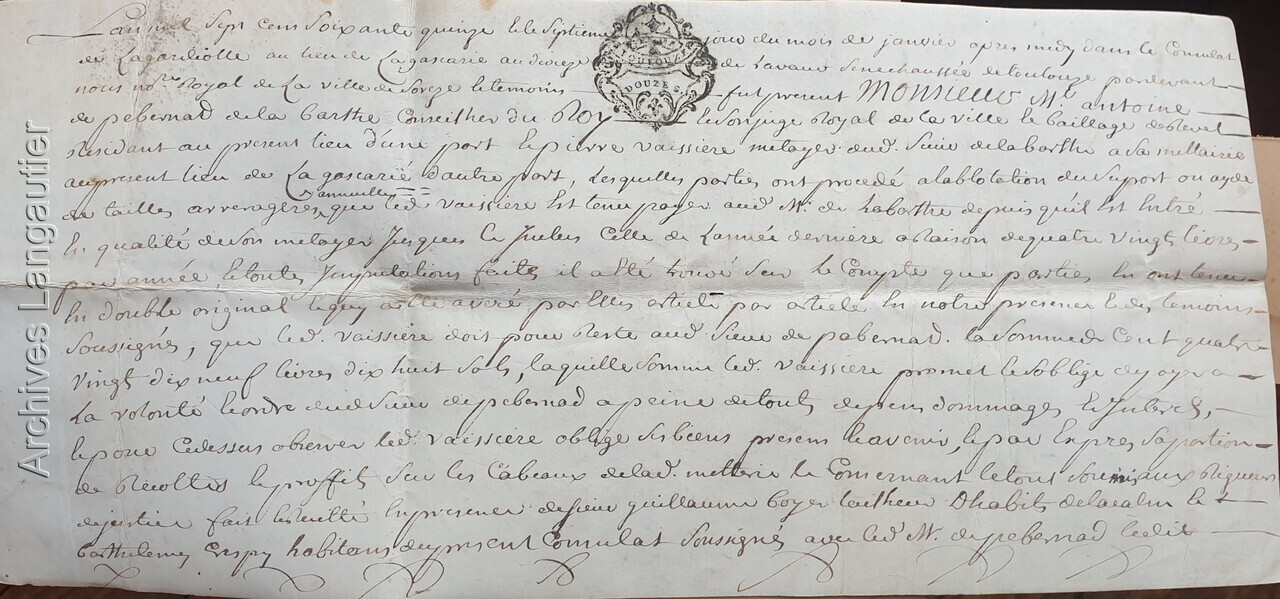 L'an mil sept cens soixante quinze et le septieme jour du mois de janvier apres midy dans le Consulat
de Lagardiolle au lieu de Lagascarié au dioceze de Lavaur Senechaussée de toulouze pardevant
nous nore Royal de La ville de Soreze et temoins fut present Monsieur Me antoine
de pebernad de la barthe Conseilher du Roy et son juge Royal de la ville et baillage de Revel
Residant au present lieu d'une part et pierre vaissière metayer dud. Sieur de labarthe a sa mettairie
au present lieu de Lagascarié d'autre part, Lesquelles parties ont procedé a du suport ou ayde
de tailles arrerageres annuelles que led. vaissière Est tenu payer aud. Mr. de Labarthe depuis qu'il Est Entré
En qualité de Son metayer Jusques Et Inclus Celle de L'année dernière a Raison de quatre vingt livres
par année, et toutes Imputations faites il a Eté trouvé Sur le Compte que parties En ont tenu
En double original et quy a Eté averé par Elles article par article En notre presence et des temoins
Soussignés, que led. vaissière doit pour Reste aud. Sieur de pebernad la Somme de Cent quatre
vingt dix neuf livres dix huit Sols, laquelle Somme led. vaissière promet et s'oblige de payer a
La volonté et ordre dud. Sieur de pebernad a peine de touts depens dommages et Interets,
et pour Cedessus observer led. vaissière oblige Ses biens presens et avenir, et par Expres Sa portion
de Recoltes et proffits Sur les Cabeaux de lad. metterie et Concernant le tous Soumis aux Rigueurs
de justice fait et Recitté En presence de Sieur guillaume boyer tailheur D'habits de et
barthelemy Crespy habitans du present Consulat Soussignés avec led. Mr. de pebernad led.
DOUZE S.
Archives Langautier